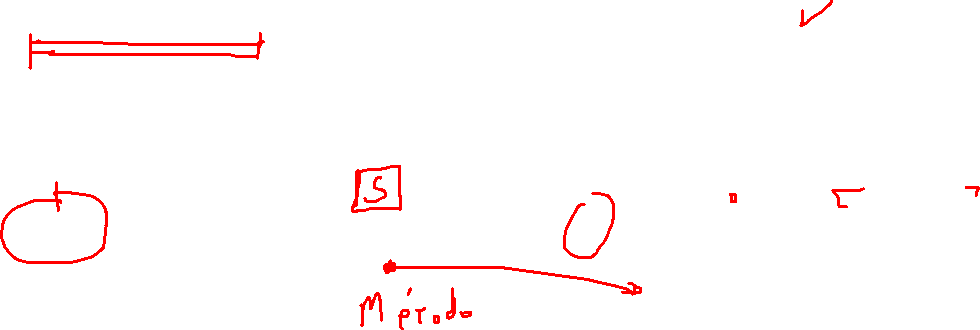 S
Método